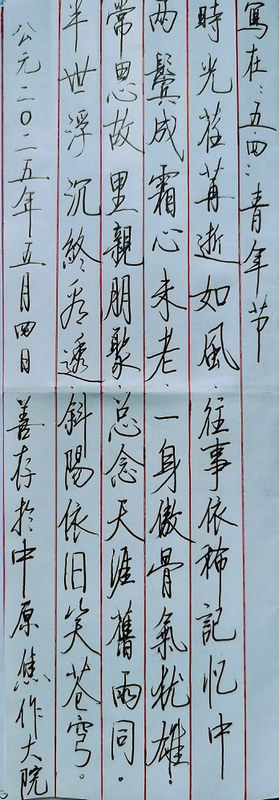 写在:五四:青年节
時光荏苒逝如風.往事依稀記忆中
两鬓成霜心未老.一身傲骨氣犹雄.
常思故里親朋聚.总念天涯舊雨同.
半世浮沉終看透.斜陽依旧笑苍穹。
公元二〇二五年五月四日 善存於中原焦作大院